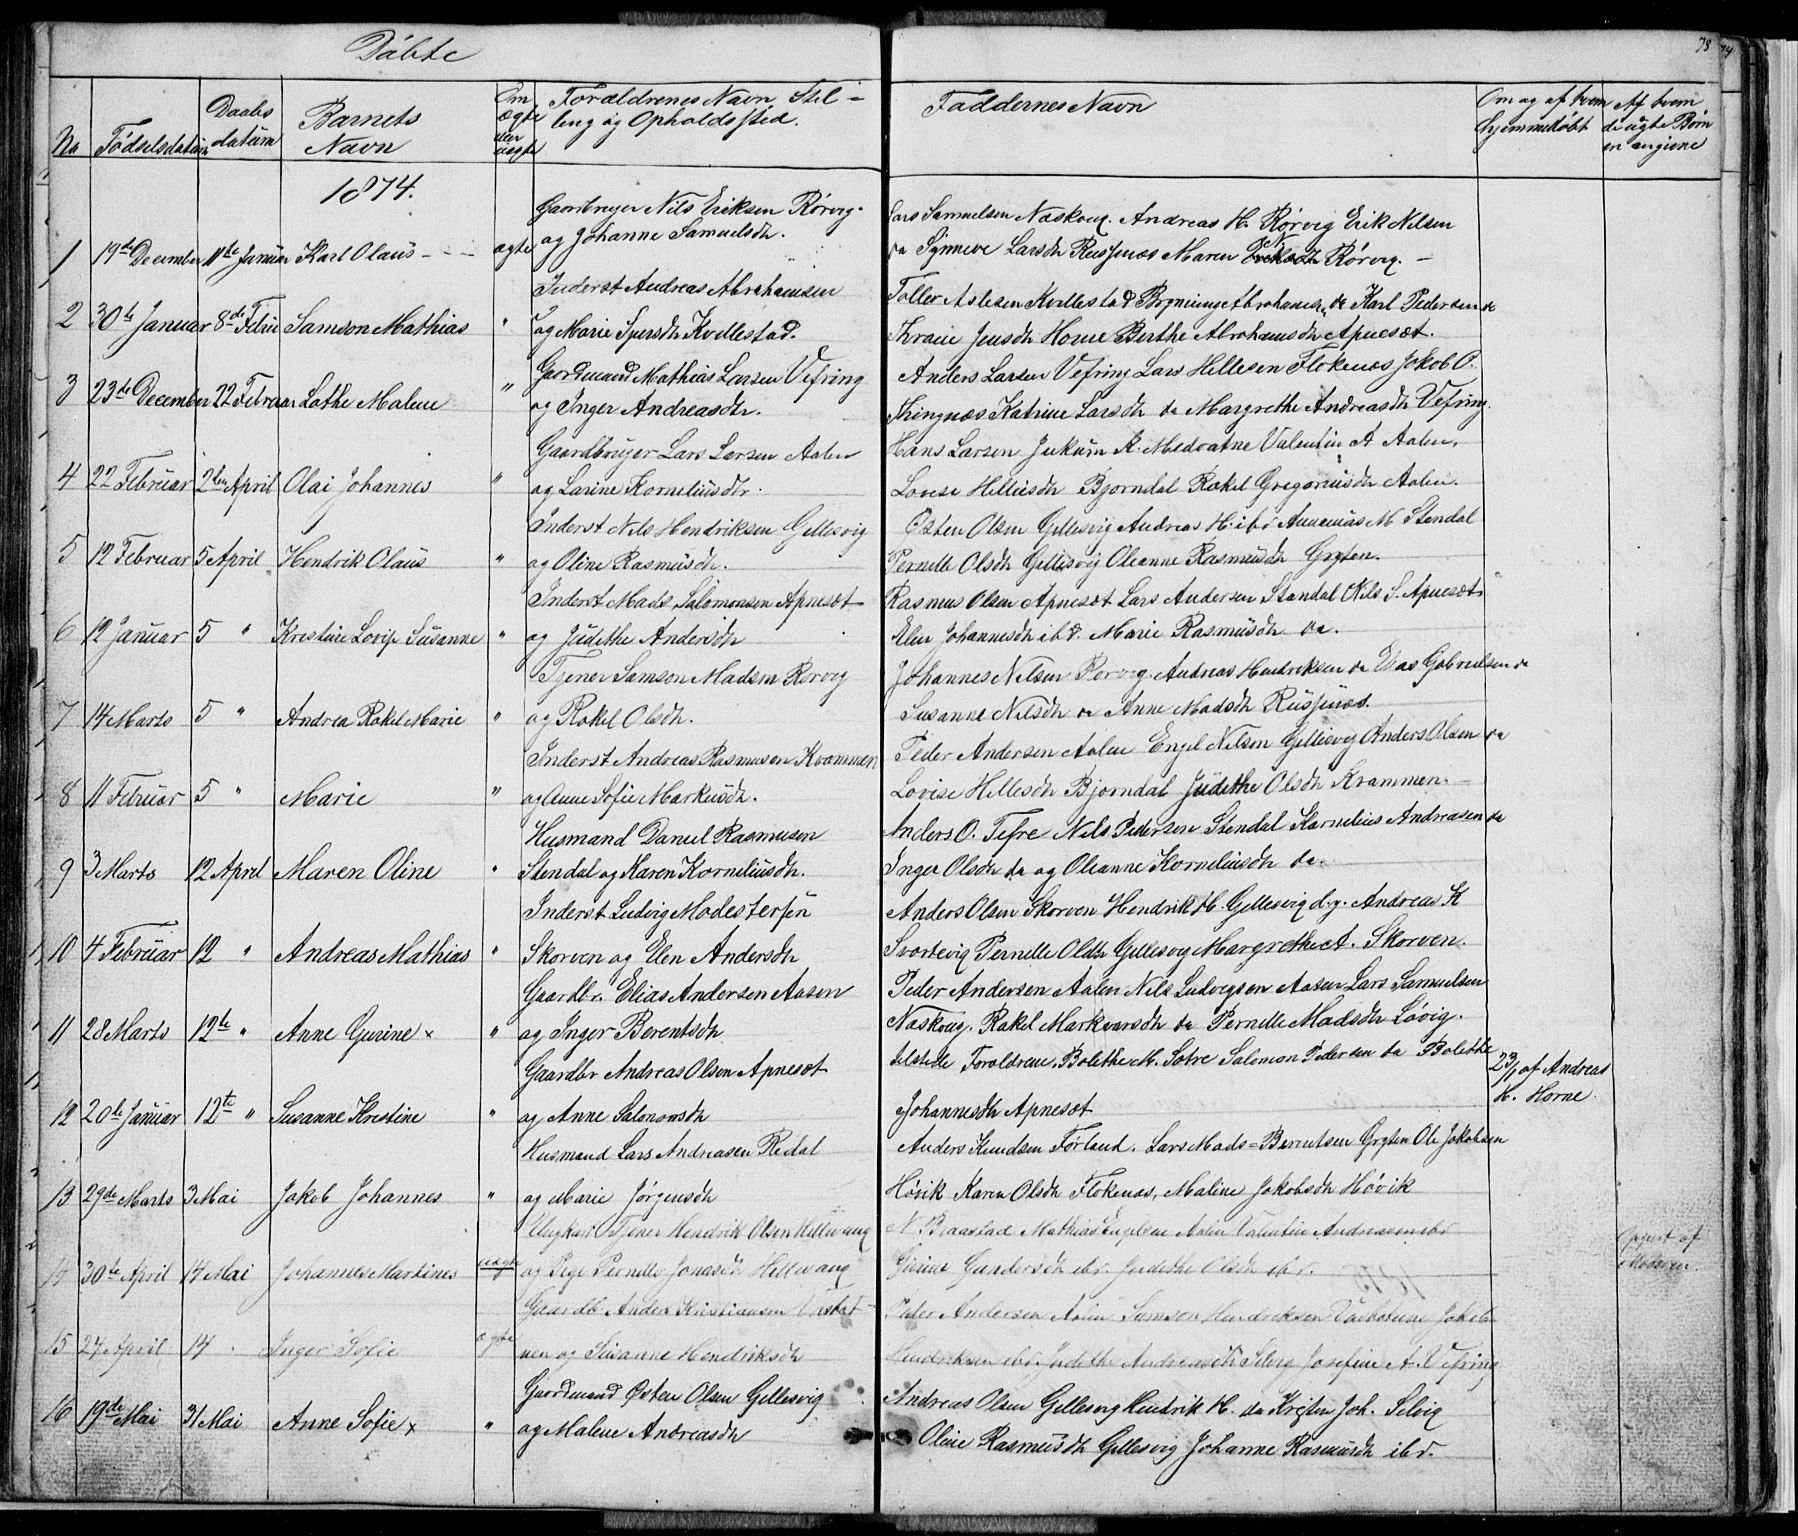 Døbte
73
No
Fødselsdatum
Daabs datum
Barnets Navn
Om ægte eller uægte
Forældrenes Navn, Stilling og Opholdssted.
Faddernes Navn
Om og af hvem hjemmedøbt
Af hvem de uægte Børn er angivne
1874.
1 19de December 11te Januar Karl Olaus - - - ægte
Gaardbruger Nils Eriksen Rørvig
og Johanne Samuelsdtr.
Lars Samuelsen Naskoug. Andreas H. Rørvig Erik Nilsen
da Synneve Larsdtr Maren Rørvig. -
2 30te Januar 8de Febru Samson Mathias "
Inderst Andreas Abrahamsen
og Marie Kvillestad.
Toller Kvillestad Abrahams. da Karl Pedersen da
Jensdtr Horne Berthe Abrahamsdtr Apnesæt.
3 23de December 22 Februar Lothe Malene "
Gaardmand Mathias Larsen Vefring
og Inger Andreasdtr.
Anders Larsen Vefring Lars Hillesen Flokenæs Jakob O.
Katrine Larsdtr da Margrethe Andreasdtr Vefring.
4 22 Februar 2den April Olai Johannes "
Gaardbruger Lars Larsen Aalen
og Larine Korneliusdtr.
Hans Larsen K. Valentin A Aalen.
Lovise Hillesdtr Bjørndal Rakel Gregoriusdtr Aalen.
5 12 Februar 5 April Hendrik Olaus "
Inderst Nils Hendriksen Gellesvig
og Oline Rasmusdtr.
Østen Olsen Gellesvig Andreas H. ibd Annanias M Stendal
Pernille Olsdtr Gellesvig Oleanne Rasmusdtr Gryten.
6 12 Januar 5 " Kristine Lovise Susanne "
Inderst Mads Salomonsen Apnesæt
og Judithe Andersdtr
Rasmus Olsen Apnesæt Lars Andersen Stendal Nils S. Apnesæt
Elen Johannesdtr ibd. Marie Rasmusdtr da.
7 14 Marts 5 " Andrea Rakel Marie "
Tjener Samson Madsen Rørvig
og Rakel Olsdtr.
Johannes Nilsen Rørvig. Andreas Hendriksen da Elias Gabrielsen da
Susanne Nilsdtr da Anne Madsdtr
8 11 Februar 5 " Marie "
Inderst Andreas Rasmusen Kvammen
og Anne Sofie Markusdtr.
Peder Andersen Aalen Engel Nilsen Gellesvig Anders Olsen da
Lovise Hillesdtr Bjørndal Judithe Olsdtr Kvammen. -
9 3 Marts 12 April Maren Oline "
Husmand Daniel Rasmusen
Stendal og Karen Korneliusdtr.
Anders O. Tefre Nils Pedersen Stendal Kornelius Andreasen da
Inger Olsdtr da og Oleanne Korneliusdtr da.
10 4 Februar 12 " Andreas Mathias "
Inderst Ludvig Modestersen
Skorven og Elen Andersdtr
Anders Olsen Skorven Hendrik H. Gellesvig d.y. Andreas K
Svortevig Pernille Olsdtr Gellesvig Margrethe A. Skorven.
11 28 Marts 12te " Anne Gurine x "
Gaardbr. Elias Andersen Aasen
og Inger Berentsdtr
Peder Andersen Aalen Nils Ludvigsen Aasen Lars Samuelsen
Naskoug. Rakel Markvarsdtr da Pernille Madsdtr Løvig.
12 20de Januar 12te " Susanne Kristine "
Gaardbr Andreas Olsen Apnesæt
og Anne Salomonsdtr
Forældrene. Bolethe M. Sotre Salomon Pedersen da Bolethe
Johannesdtr Apnesæt
23/1 af Andreas
H. Horne.
13 29de Marts 3 Mai Jakob Johannes "
Husmand Lars Andreasen Redal
og Marie Jørgensdtr
Anders Knudsen Førland. Lars Mads=Berentsen Gryten Ole Jakobsen
Høvik Karen Olsdtr Flokenæs, Maline Jakobsdtr Høvik
14 30te April 14 Mai Johannes Martines uægte
Ungkarl Tjener Hendrik Olsen Hellevang
og Pige Pernille Jonasdtr Hellevang
N. Baastad Mathias Engelsen Aalen Valentin Andreasen ibd
Gurine Gundersdtr ibd. Judithe Olsdtr ibd.
Opgivet af
Moderen.
15 24 April 14 " Inger Sofie ægte
Gaardbr. Anders Kristiansen
nen og Susanne Hendriksdtr
Peder Andersen Aalen Samson Hendriksen Jakob
Hendriksen ibd. Judithe Andreasdtr Selvig Josefine A. Vefring
16 19de Mai 31 Mai Anne Sofie x "
Gaardmand Østen Olsen Gellesvig
og Malene Andreasdtr
Andreas Olsen Gellesvig Hendrik H. da Kristen Joh. Selvig
Oline Rasmusdtr Gellesvig Johanne Rasmusdtr ibd.